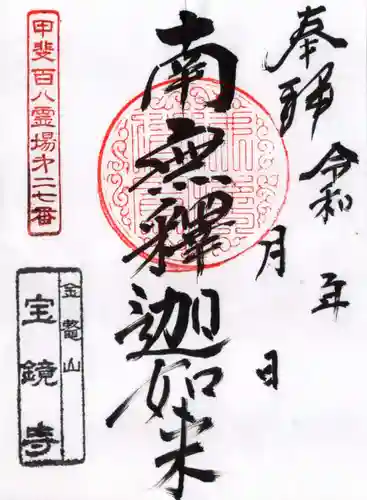 奉拝 令和 年 月 日
南無釋迦如来
甲斐百八霊場第二七番
金鼇山
宝鏡寺